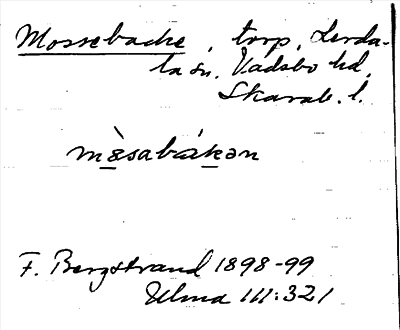 Mossebacke, torp, Lerda-
la sn, Vadsbo hd,
Skarab. l.
mòsabákən
F. Bergstrand 1898-99
Ulma 111:321